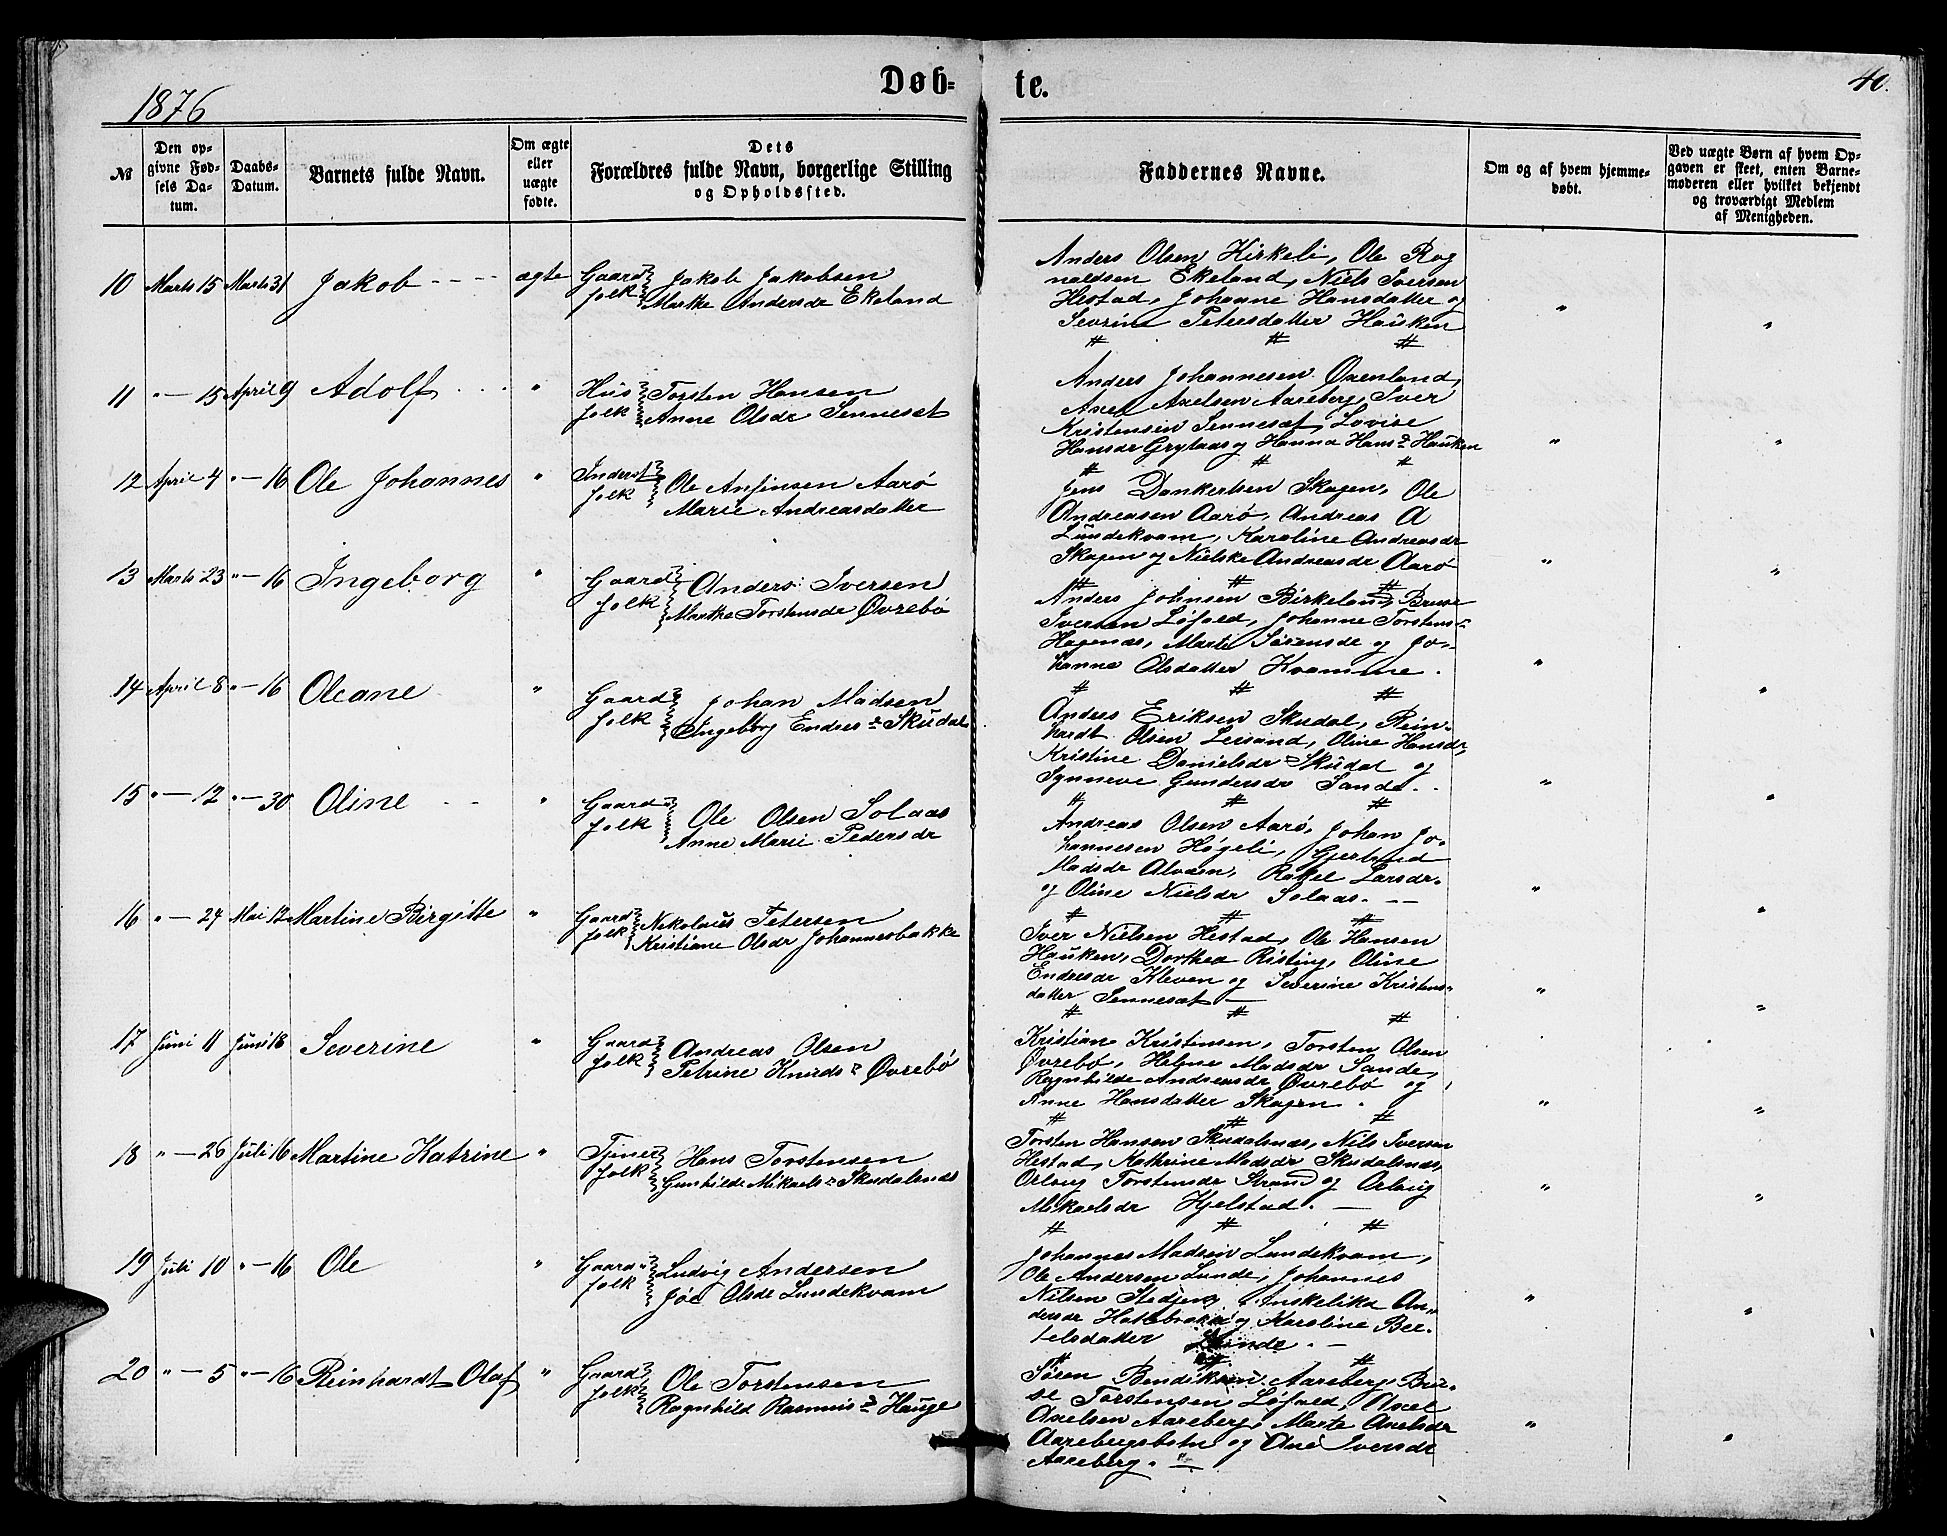 Døb-
te.
1876
40.
№
Den op-
givne Fød-
sels Da-
tum.
Daabs-
Datum.
Barnets fulde Navn.
Om ægte
eller
uægte
fødte.
Dets
Forældres fulde Navn, borgerlige Stilling
og Opholdssted.
Faddernes Navne.
Om og af hvem hjemme-
døbt.
Ved uægte Børn af hvem Op-
gaven er skeet, enten Barne-
moderen eller hvilket bekjendt
og troværdigt Medlem
af Menigheden.
10 Marts 15 Marts 31 Jakob ægte Gaard- Jakob Jakobsen
folk Marthe Andersdr Ekeland
Anders Olsen Kirkeli, Ole Rog
naldsen Ekeland, Niels Iversen
Hestad, Johanne Hansdatter og
Severine Petersdatter Hauken
11 " — 15 April 9 Adolf " Hus Torsten Hansen
folk Anne Olsdr Senneset
Anders Johannesen Øvenland,
Axel Axelsen Aareberg, Iver
Kristensen Sennesæt, Lovise
Hansdr Grytaas og Hanna Hansdr Hauken
12 April 4 " — 16 Ole Johannes " Inderst folk Ole Anfinsen Aarø
Marie Andreasdatter
Jens Dankertsen Skagen, Ole
Andreasen Aarø, Andreas A
Lundekvam, Karoline Andreasdr
Skagen og Nielske Andreasdr Aarø
13 Marts 23 " — 16 Ingeborg " Gaard- Anders Iversen
folk Marthe Torstensdr Øvrebø
Anders Johnsen Birkeland, Brune
Iversen Løfald, Johanne Torstensdr
Hagenæs, Marte Sørensdr og Jo-
hanna Olsdatter Kvamme.
14 April 8 " — 16 Oleane " Gaard- Johan Madsen
folk Ingeborg Endresdr Skudal
Anders Eriksen Skudal, Rein-
hardt Olsen Leisand, Oline Hansdr,
Kristine Danielsdr Skudal og
Synneve Gundersdr Sande.
15 " — 12 " — 30 Oline " Gaard- Ole Olsen Solaas
folk Anne Marie Pedersdr
Andreas Olsen Aarø, Johan Jo-
hannesen Høgeli, Gjertrud
Madsdr Alvæn, Rakel Larsdr.
og Oline Nielsdr Solaas.
16 " — 24 Mai 12 Martine Birgitte " Gaard- Nikolaus Petersen
folk Kristiane Olsdr Johannesbakke
Iver Nielsen Hestad, Ole Hansen
Hauken, Dorthea Risting, Oline
Endresdr Kleven og Severine Kristens-
datter Sennesæt —
17 Juni 11 Juni 18 Severine " Gaard- Andreas Olsen
folk Petrine Knudsdr Øvrebø
Kristian Kristensen, Torsten Olsen
Øvrebø, Helene Madsdr Sande,
Ragnhilde Andreasdr Øvrebø og
Anne Hansdatter Skagen.
18 " — 26 Juli 16 Martine Katrine " Tjener Hans Torstensen
folk Gunhilde Mikaelsdr Skudalsnæs
Torsten Hansen Skudalsnæs, Nils Iversen
Hestad, Kathrine Madsdr Skudalsnæs,
Orlaug Torstensdr Strand og Orlaug
Mikaelsdr Hjelstad. —
19 Juli 10 " — 16 Ole " Gaard- Ludvig Andersen
folk Jøa Olsdr Lundekvam
Johannes Madsen Lundekvam,
Ole Andersen Lunde, Johannes
Nilsen Stedjen, Anskelika An-
dersdr og Karoline Ber-
telsdatter Lunde. —
20 " — 5 " — 16 Reinhardt Olaf " Gaard- Ole Torstensen
folk Ragnhild Rasmusdr Hauge
Søren Bendiksen Aareberg, Bru-
se Torstensen Løfald, Axel
Axelsen Aareberg, Marte Axelsdr
Aarebergsbotn og Ane Iversdr
Aareberg.